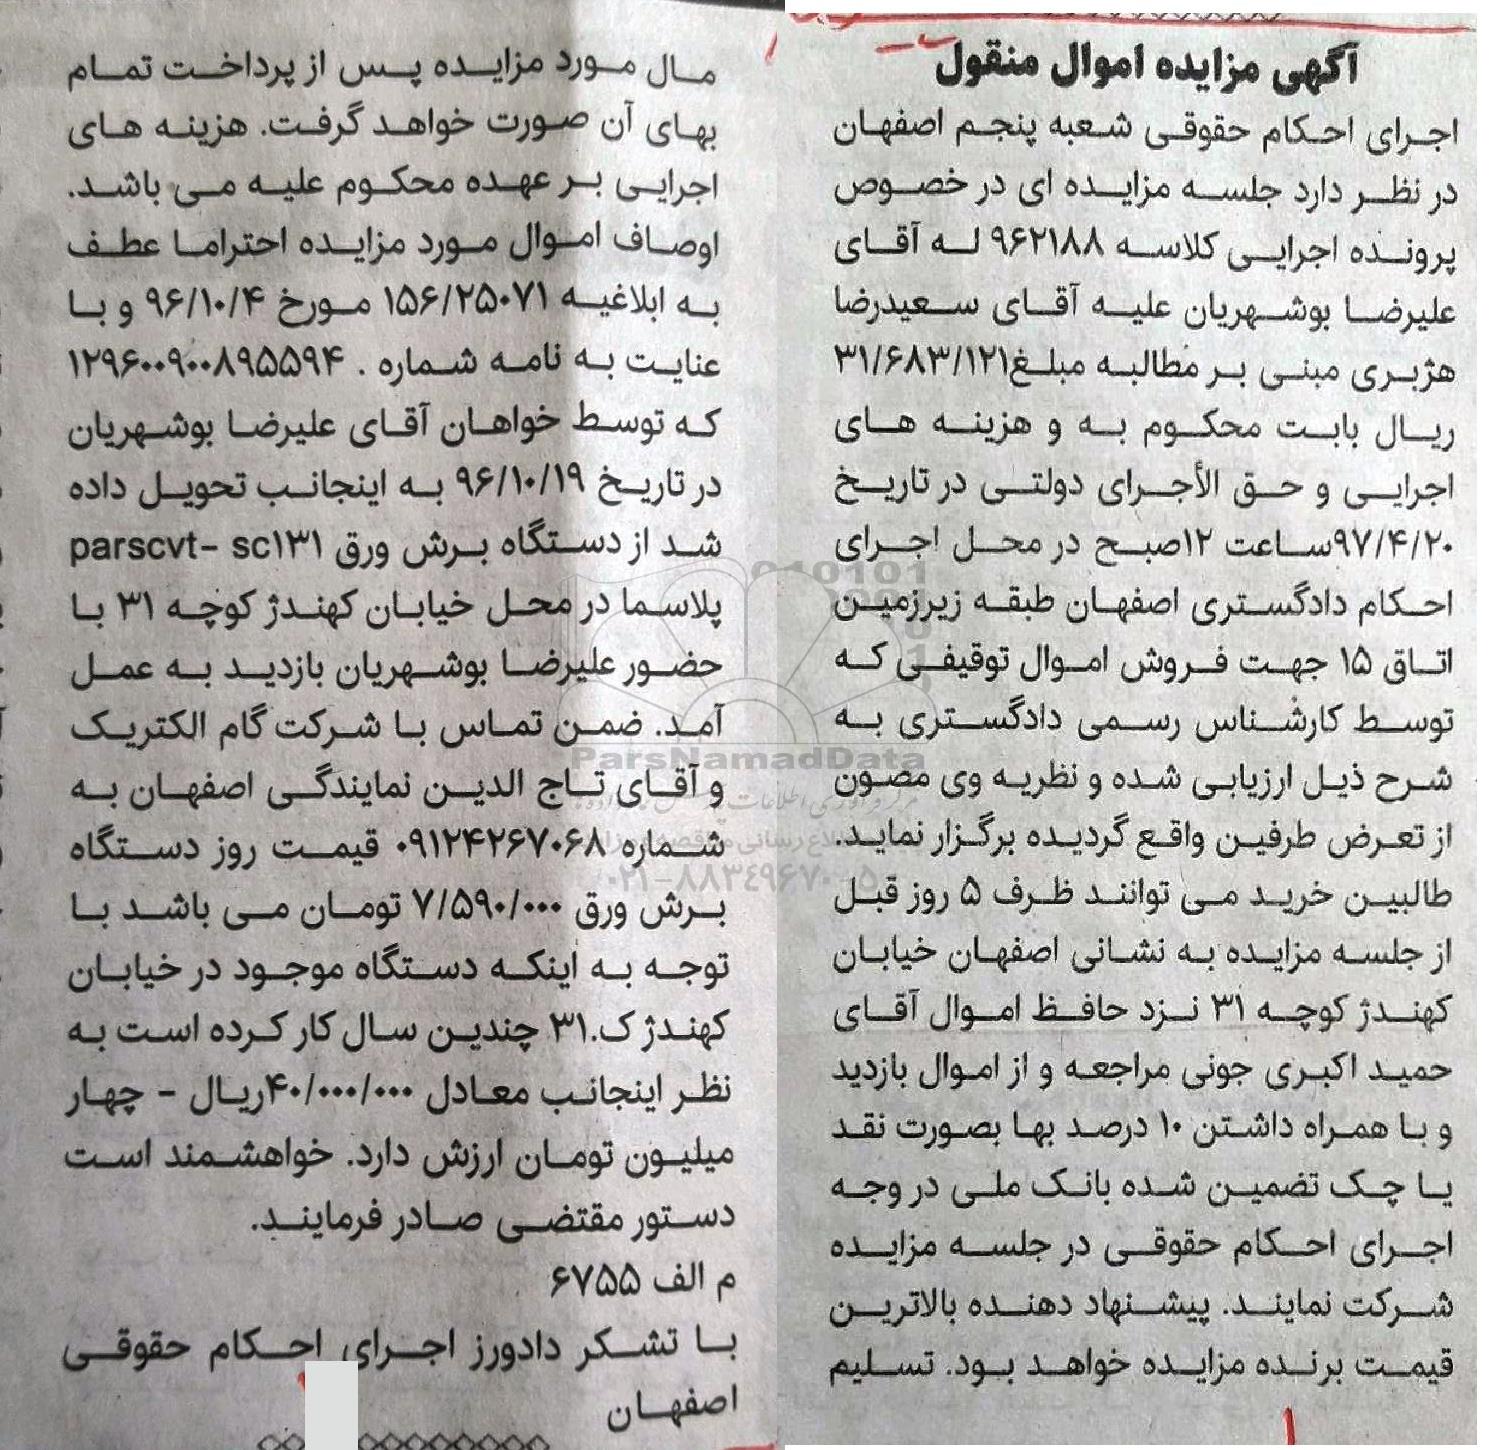 آگهی مزایده اموال منقول
اجرای احکام حقوقی شعبه پنجم اصفهان
در نظر دارد جلسه مزایده ای در خصوص
پرونده اجرایی کلاسه ۹۶۲۱۸۸ له آقای
علیرضا بوشهریان علیه آقای سعیدرضا
هژبری مبنی بر مطالبه مبلغ۳۱/۶۸۳/۱۲۱
ریال بابت محکوم به و هزینه های
اجرایی و حق الأجرای دولتی در تاریخ
۹۷/۴/۲۰ساعت ۱۲صبح در محل اجرای
احکام دادگستری اصفهان طبقه زیرزمین
اتاق ۱۵ جهت فروش اموال توقیفی که
توسط کارشناس رسمی دادگستری به
شرح ذیل ارزیابی شده و نظریه وی مصون
از تعرض طرفین واقع گردیده برگزار نماید.
طالبین خرید می توانند ظرف ۵ روز قبل
از جلسه مزایده به نشانی اصفهان خیابان
کهندژ کوچه ۳۱ نزد حافظ اموال آقای
حمید اکبری جونی مراجعه و از اموال بازدید
و با همراه داشتن ۱۰ درصد بها بصورت نقد
یا چک تضمین شده بانک ملی در وجه
اجرای احکام حقوقی در جلسه مزایده
شرکت نمایند. پیشنهاد دهنده بالاترین
قیمت برنده مزایده خواهد بود. تسلیم
مال مورد مزایده پس از پرداخت تمام
بهای آن صورت خواهد گرفت. هزینه های
اجرایی بر عهده محکوم علیه می باشد.
اوصاف اموال مورد مزایده احتراما عطف
به ابلاغیه ۱۵۶/۲۵۰۷۱ مورخ ۹۶/۱۰/۴ و با
عنایت به نامه شماره . ۱۲۹۶۰۰۹۰۰۸۹۵۵۹۴
که توسط خواهان آقای علیرضا بوشهریان
در تاریخ ۹۶/۱۰/۱۹ به اینجانب تحویل داده
شد از دستگاه برش ورق parscvt- sc۱۳۱
پلاسما در محل خیابان کهندژ کوچه ۳۱ با
حضور علیرضا بوشهریان بازدید به عمل
آمد. ضمن تماس با شرکت گام الکتریک
و آقای تاج الدین نمایندگی اصفهان به
شماره ۰۹۱۲۴۲۶۷۰۶۸ قیمت روز دستگاه
برش ورق ۷/۵۹۰/۰۰۰ تومان می باشد با
توجه به اینکه دستگاه موجود در خیابان
کهندژ ک.۳۱ چندین سال کار کرده است به
نظر اینجانب معادل ۴۰/۰۰۰/۰۰۰ریال - چهار
میلیون تومان ارزش دارد. خواهشمند است
دستور مقتضی صادر فرمایند.
م الف ۶۷۵۵
با تشکر دادورز اجرای احکام حقوقی
اصفهان
ParsNamadData
۰۲۱-۸۸۳۴۹۶۷۰-۵